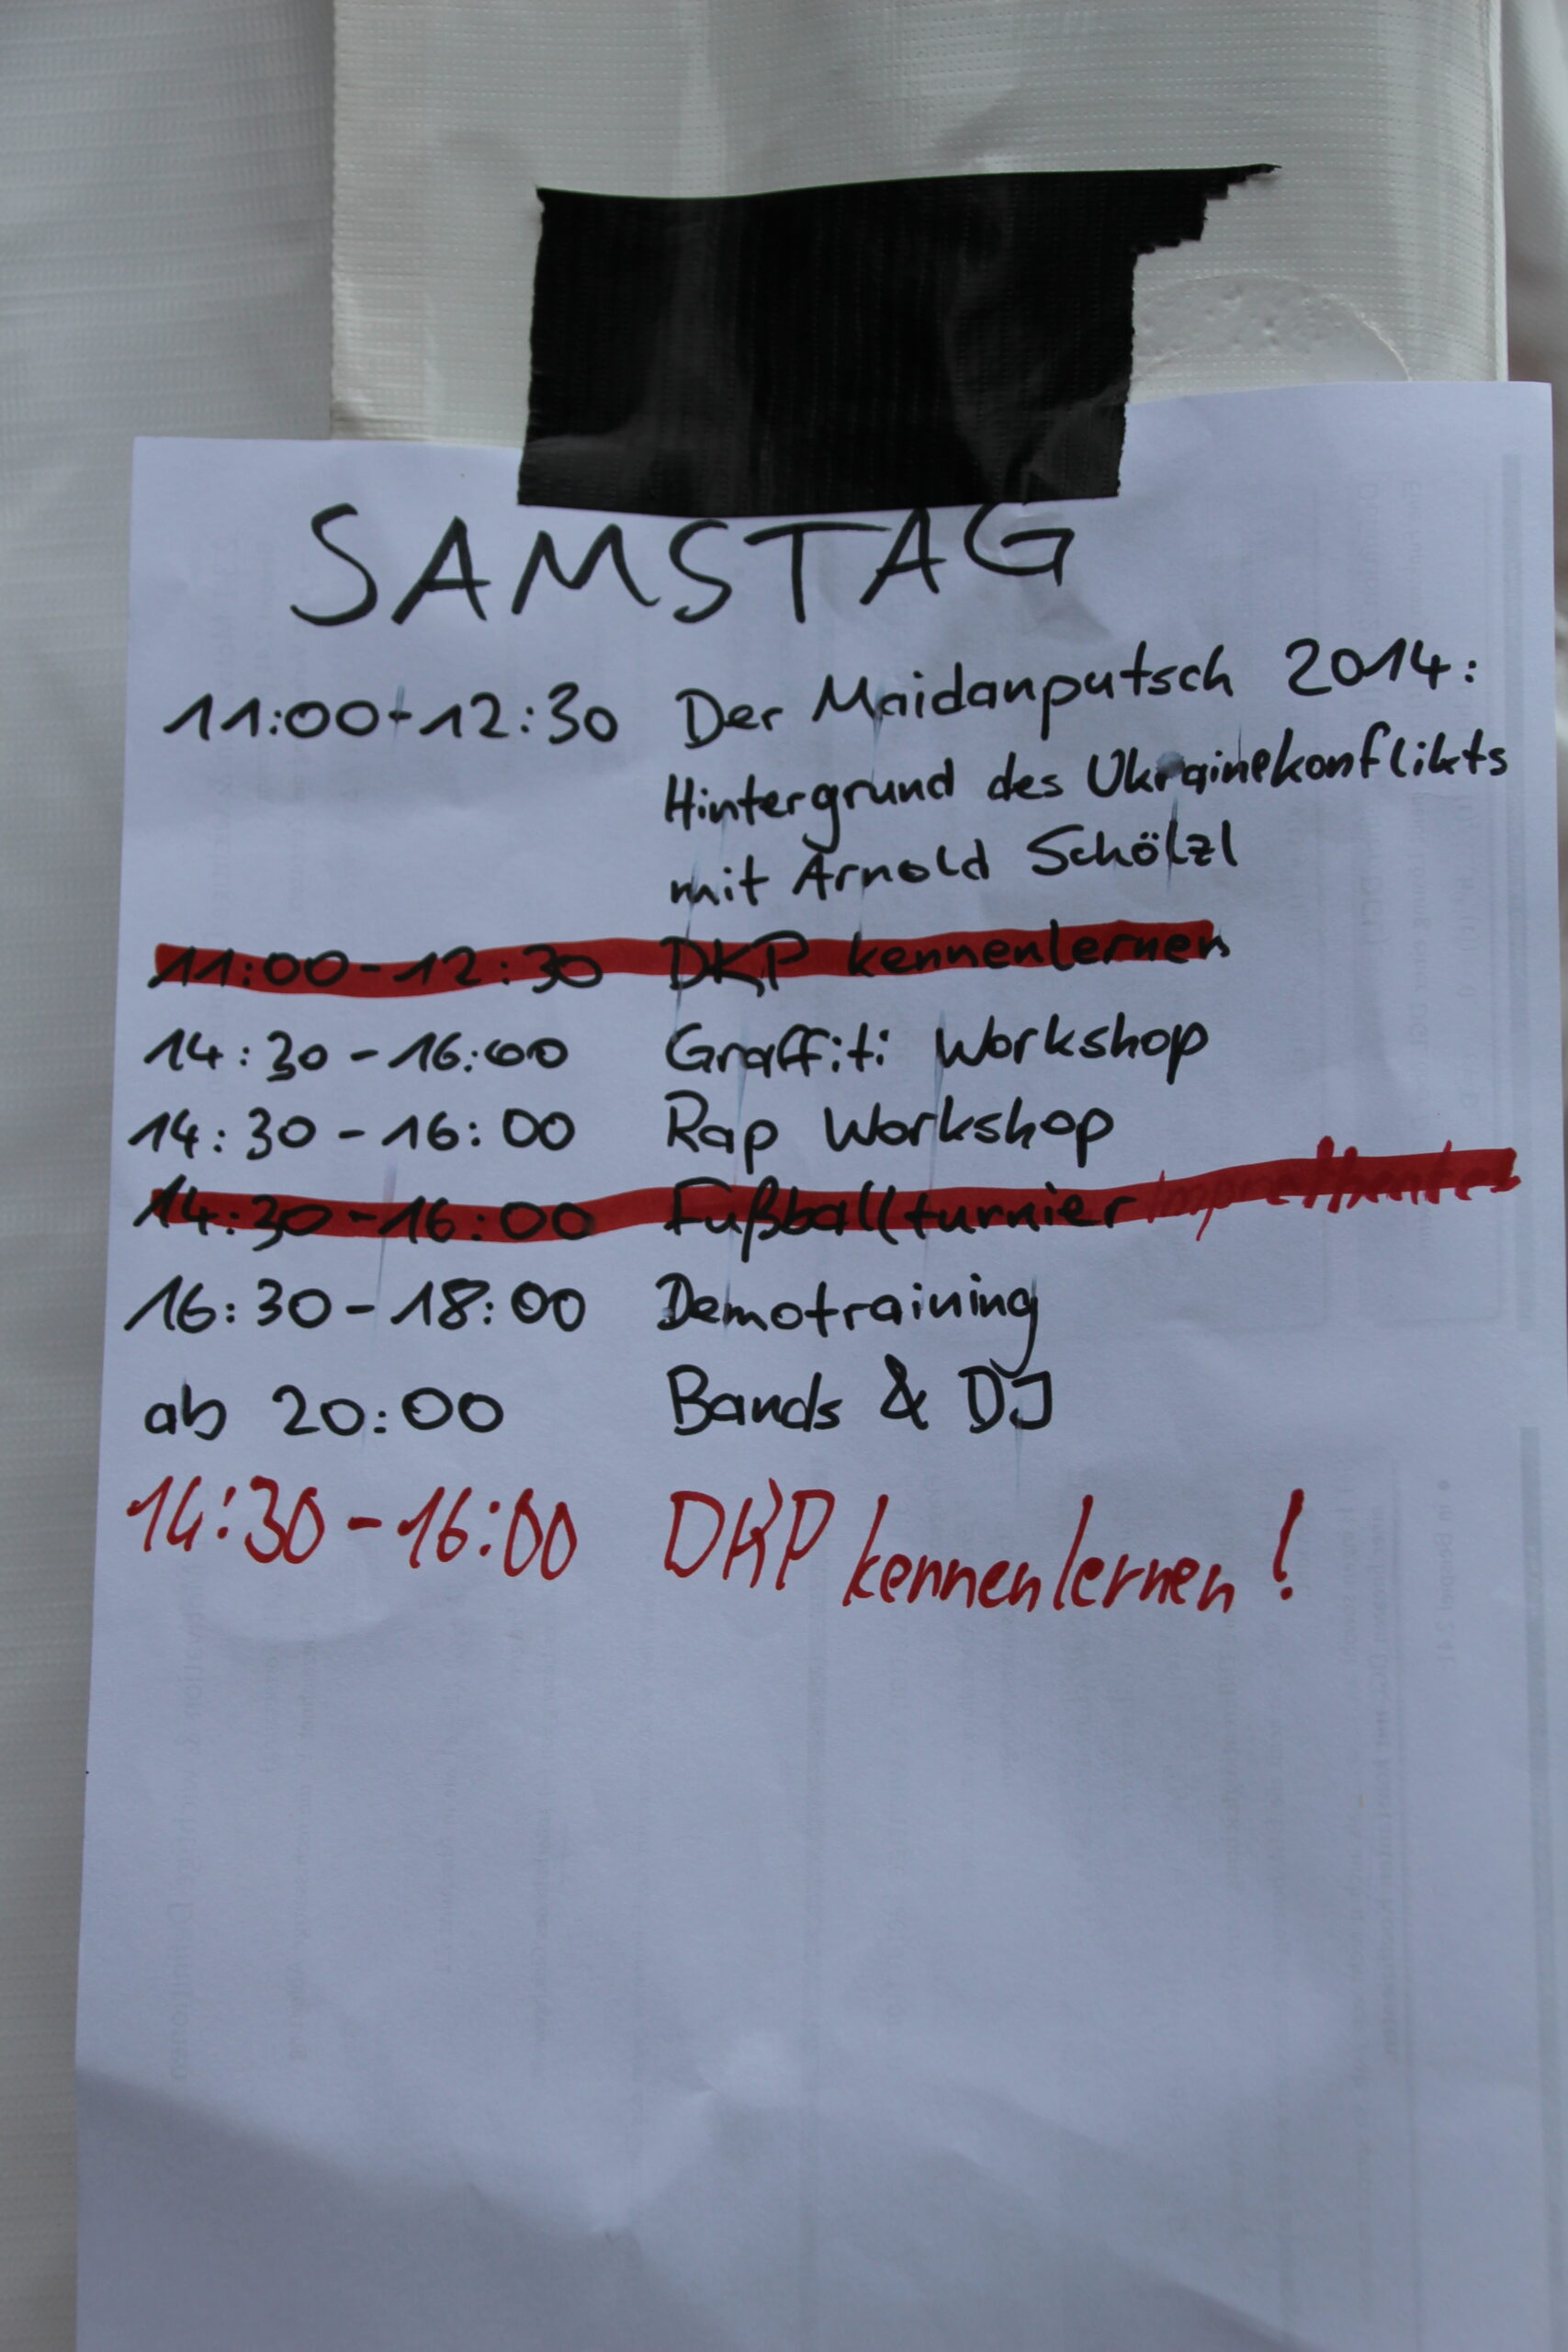 SAMSTAG
11:00-12:30 Der Maidanputsch 2014:
Hintergrund des Ukrainekonflikts
mit Arnold Schölzl
11:00-12:30 DKP kennenlernen
14:30-16:00 Graffiti Workshop
14:30-16:00 Rap Workshop
14:30-16:00 Fußballturnier Improtheater
16:30-18:00 Demotraining
ab 20:00 Bands & DJ
14:30-16:00 DKP kennenlernen!